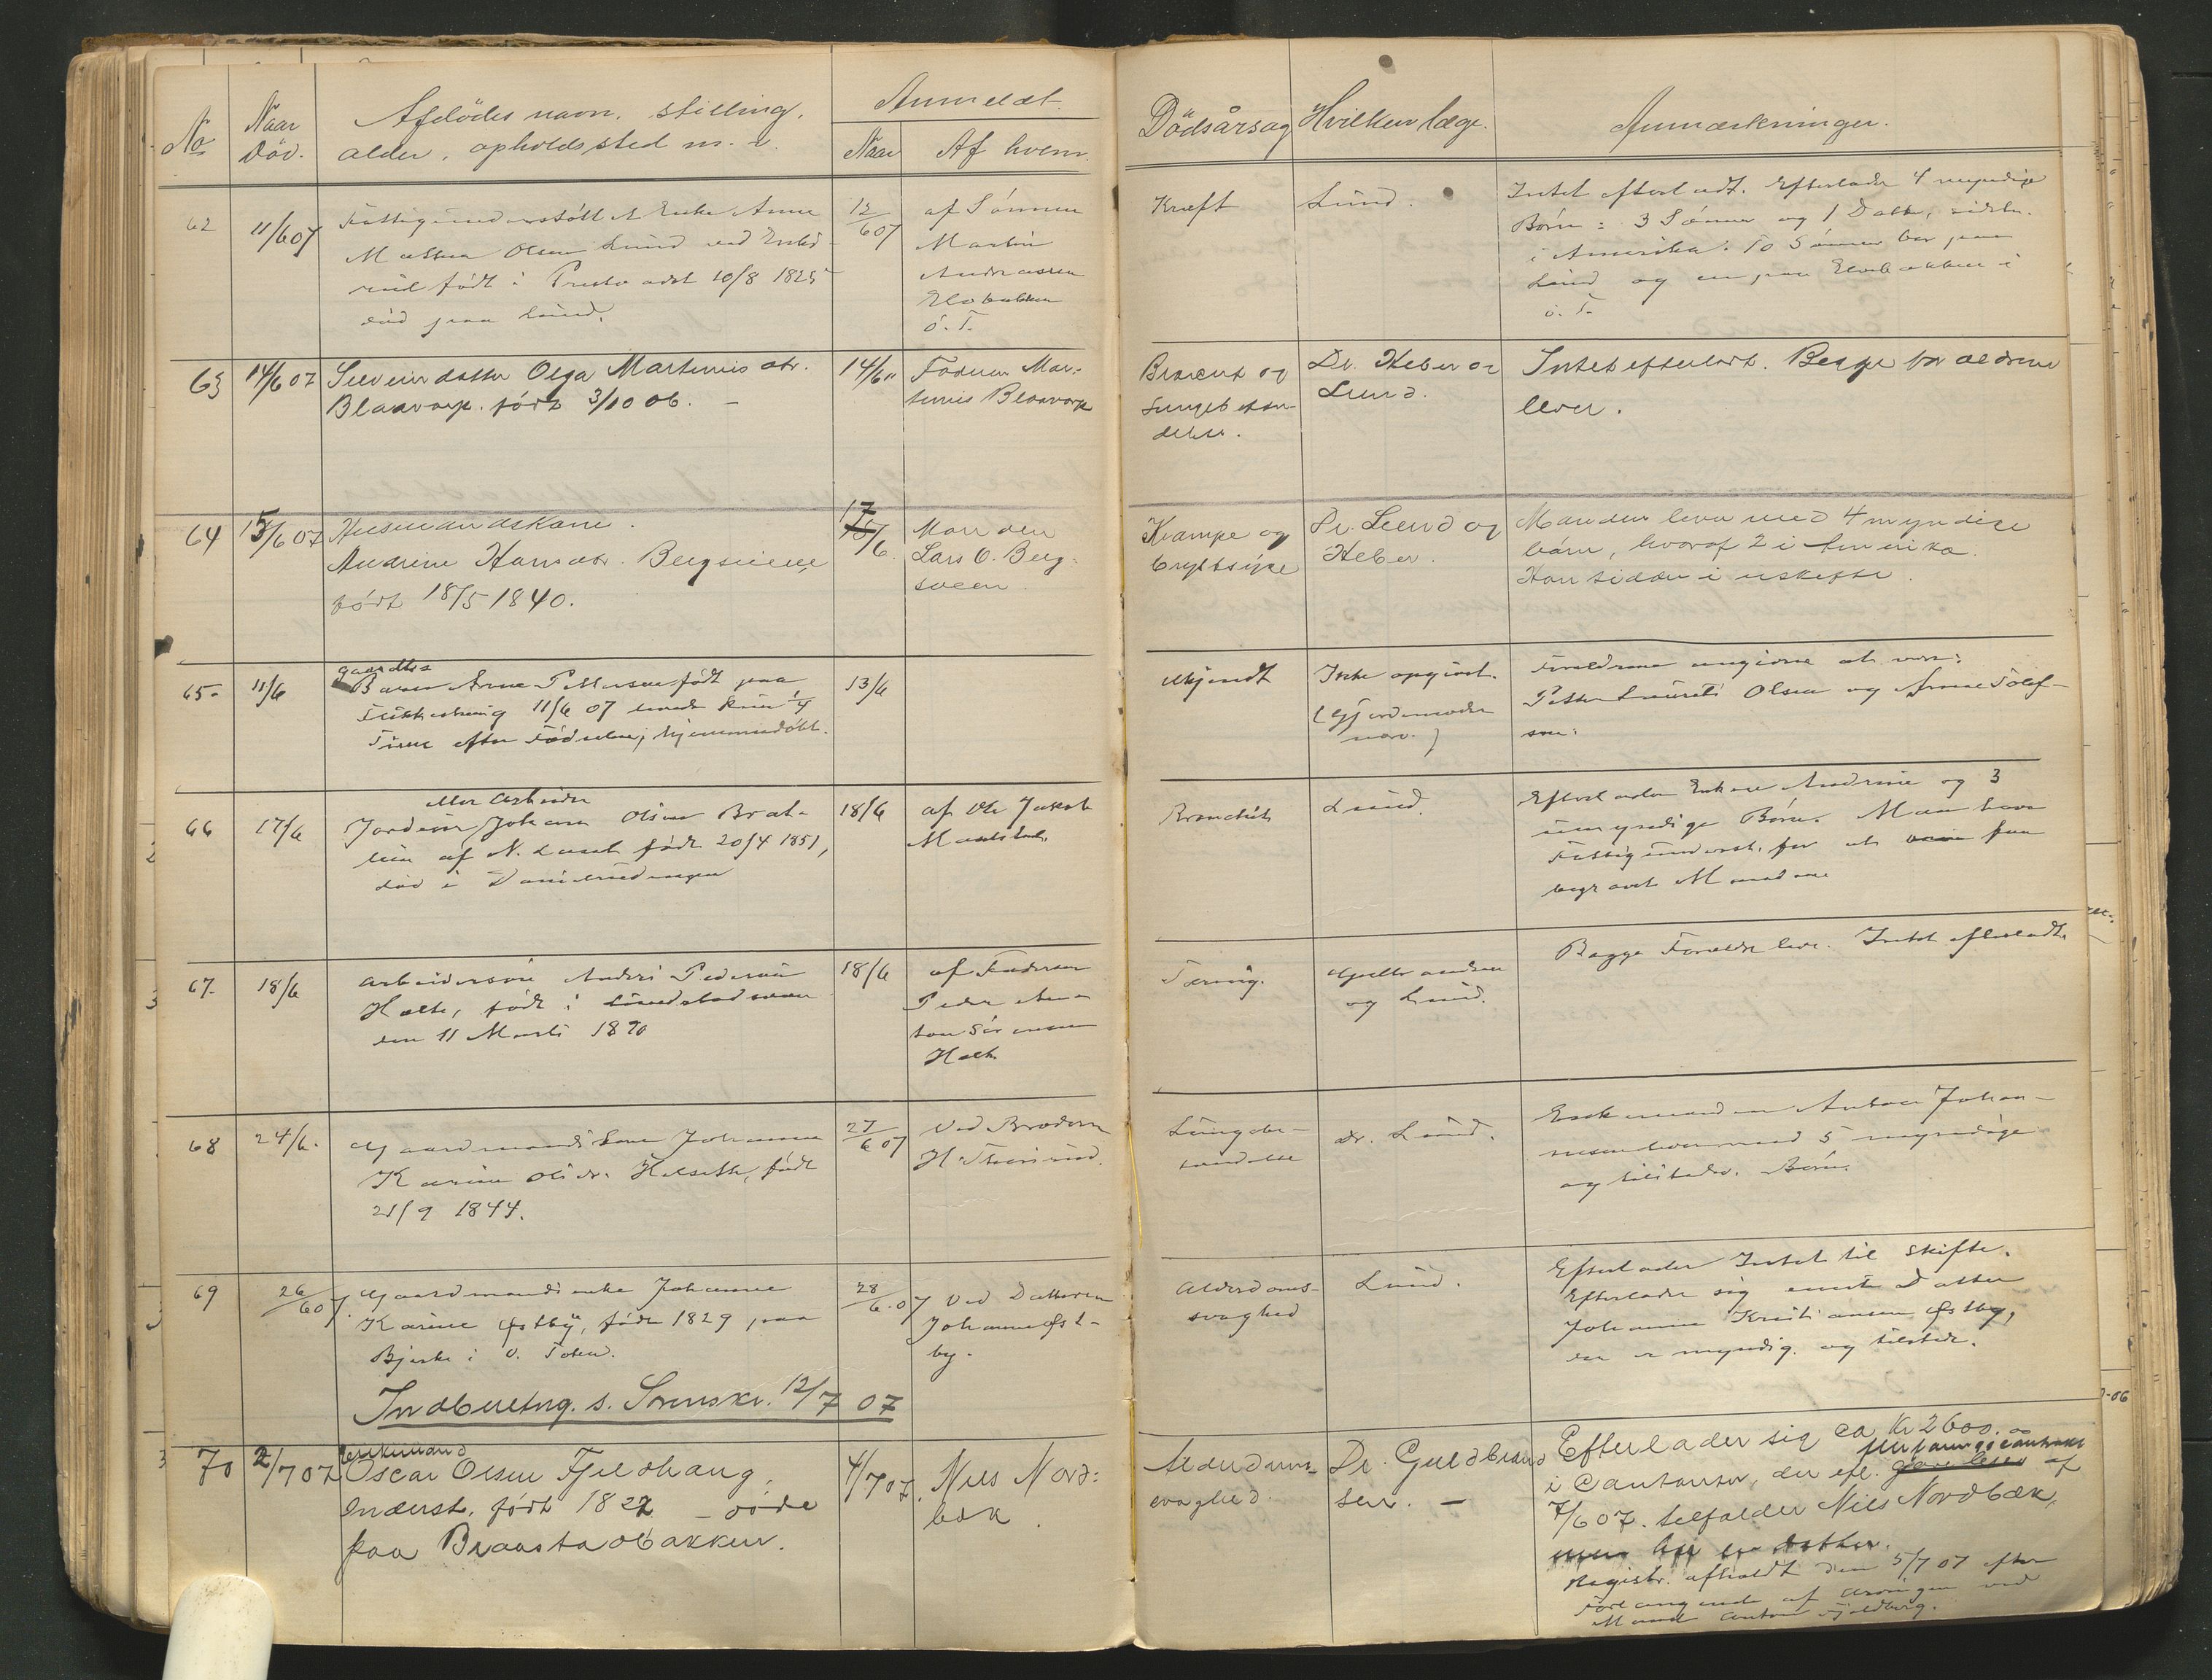 No
Naar
Död.
Afdödes navn, stilling,
alder, opholdssted m. v.
Anmeldt.
Naar
Af hvem.
Dödsårsag
Hvilken læge.
Anmærkninger.
62
11/6 07
Fattigunderstöttet Enke Anne
Mathea Olsen Lund
født i 10/8 1825
död paa Lund.
12/6 07
af Sønnen
Martin
Andreassen
Elvebakken
ö. T.
Kræft
Lund.
Intet efterladt. Efterlader 4 myndige
Børn: 3 Sønner og 1 Datter, sidste
i Amerika. To Sønner bor paa
Lund og en paa Elvebakken i
ö. T.
63
14/6 07
Olga Martinius dtr.
Blaavarp. født 3/10 06. –
14/6 "
Faderen Mar-
tinius Blaavarp
Broncit og
Lungebetæn-
delse.
Dr. Heber og
Lund.
Intet efterladt. Begge forældrene
lever.
64
15/6 07
Husmandskone.
Andrine Hansdtr. Bergsveen,
født 18/5 1840.
17/6.
Manden
Lars O. Berg-
sveen
Krampe og
brystsyge
Dr. Lund og
Heber.
Manden lever med 4 myndige
børn, hvoraf 2 i Amerika.
Han sidder i uskifte.
65-
11/6
Barn Arne Pettersen født paa
11/6 07 levede kun 1/4
Time efter Fødselen, hjemmedøbt.
13/6
Ukjendt
Ikke opgivet.
(Gjordemoder
nær.)
Forældrene angives at være:
Petter Laurits Olsen og Anne Tolef-
sen.
66
17/6
eller Arbeider
Johan Olsen Brat-
lien af N. født 20/4 1851,
død i
18/6
af Ole Jakob
Bronchit
Lund.
Efterlader Enken Andrine og 3
umyndige Børn. Maa have
Fattigunderst. for at faa
begravet Manden
67-
18/6
Arbeidersøn Anders Pedersen
Holte, født i
den 11 Marts 1890
18/6
af Faderen
Peder An-
ton Sörensen
Holte
Tæring.
Guldbrandsen
og Lund.
Begge Forældre lever. Intet efterladt.
68
24/6.
Gaardmandskone Johanne
Karine Olsdr. Helseth, født
21/9 1844.
27/6 07
Ved Broderen
Lungebe-
tændelse
Dr. Lund.
Enkemanden Anton Johan-
nesen lever med 5 myndige
og tilstedev. Børn.
69
26/6 07.
Gaardmandsenke Johanne
Karine Østby, født 1829 paa
Bjerke i V. Toten.
28/6.07
Ved Datteren
Johanne Øst-
by.
Alderdoms-
svaghed
Lund.
Efterlader Intet til skifte.
Efterlader sig eneste Datter
Johanne Kristiansen Østby,
der er myndig og tilstede.
Indberetng. s. Sorenskr. 12/7 07
70
2/7 07
Enkemand
Oscar Olsen Fjeldhaug,
Inderst, født 1827 – døde
paa Braastadbakken.
4/7 07.
Nils Nord-
bæk.
Alderdoms-
svaghed.
Dr. Guldbrand
sen. –
Efterlader sig ca Kr 2600.
i Contanter, der efl. af
7/6 07. tilfalder Nils Nordbæk,
Registr. afholdt den 5/7 07 efter
Forlangende af Arvingen ved
Anton Fjeldberg.